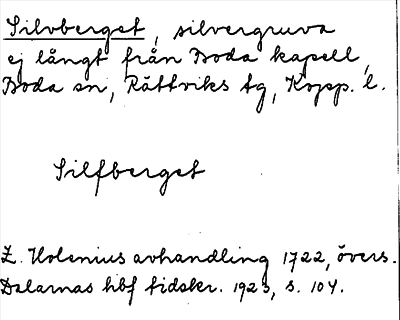 Silvberget, silvergruva
ej långt från Boda kapell,
Boda sn, Rättviks tg, Kopp. l.
Silfberget
Z. Holenius avhandling 1722, övers.
Dalarnas hbf tidskr. 1923, s. 104.